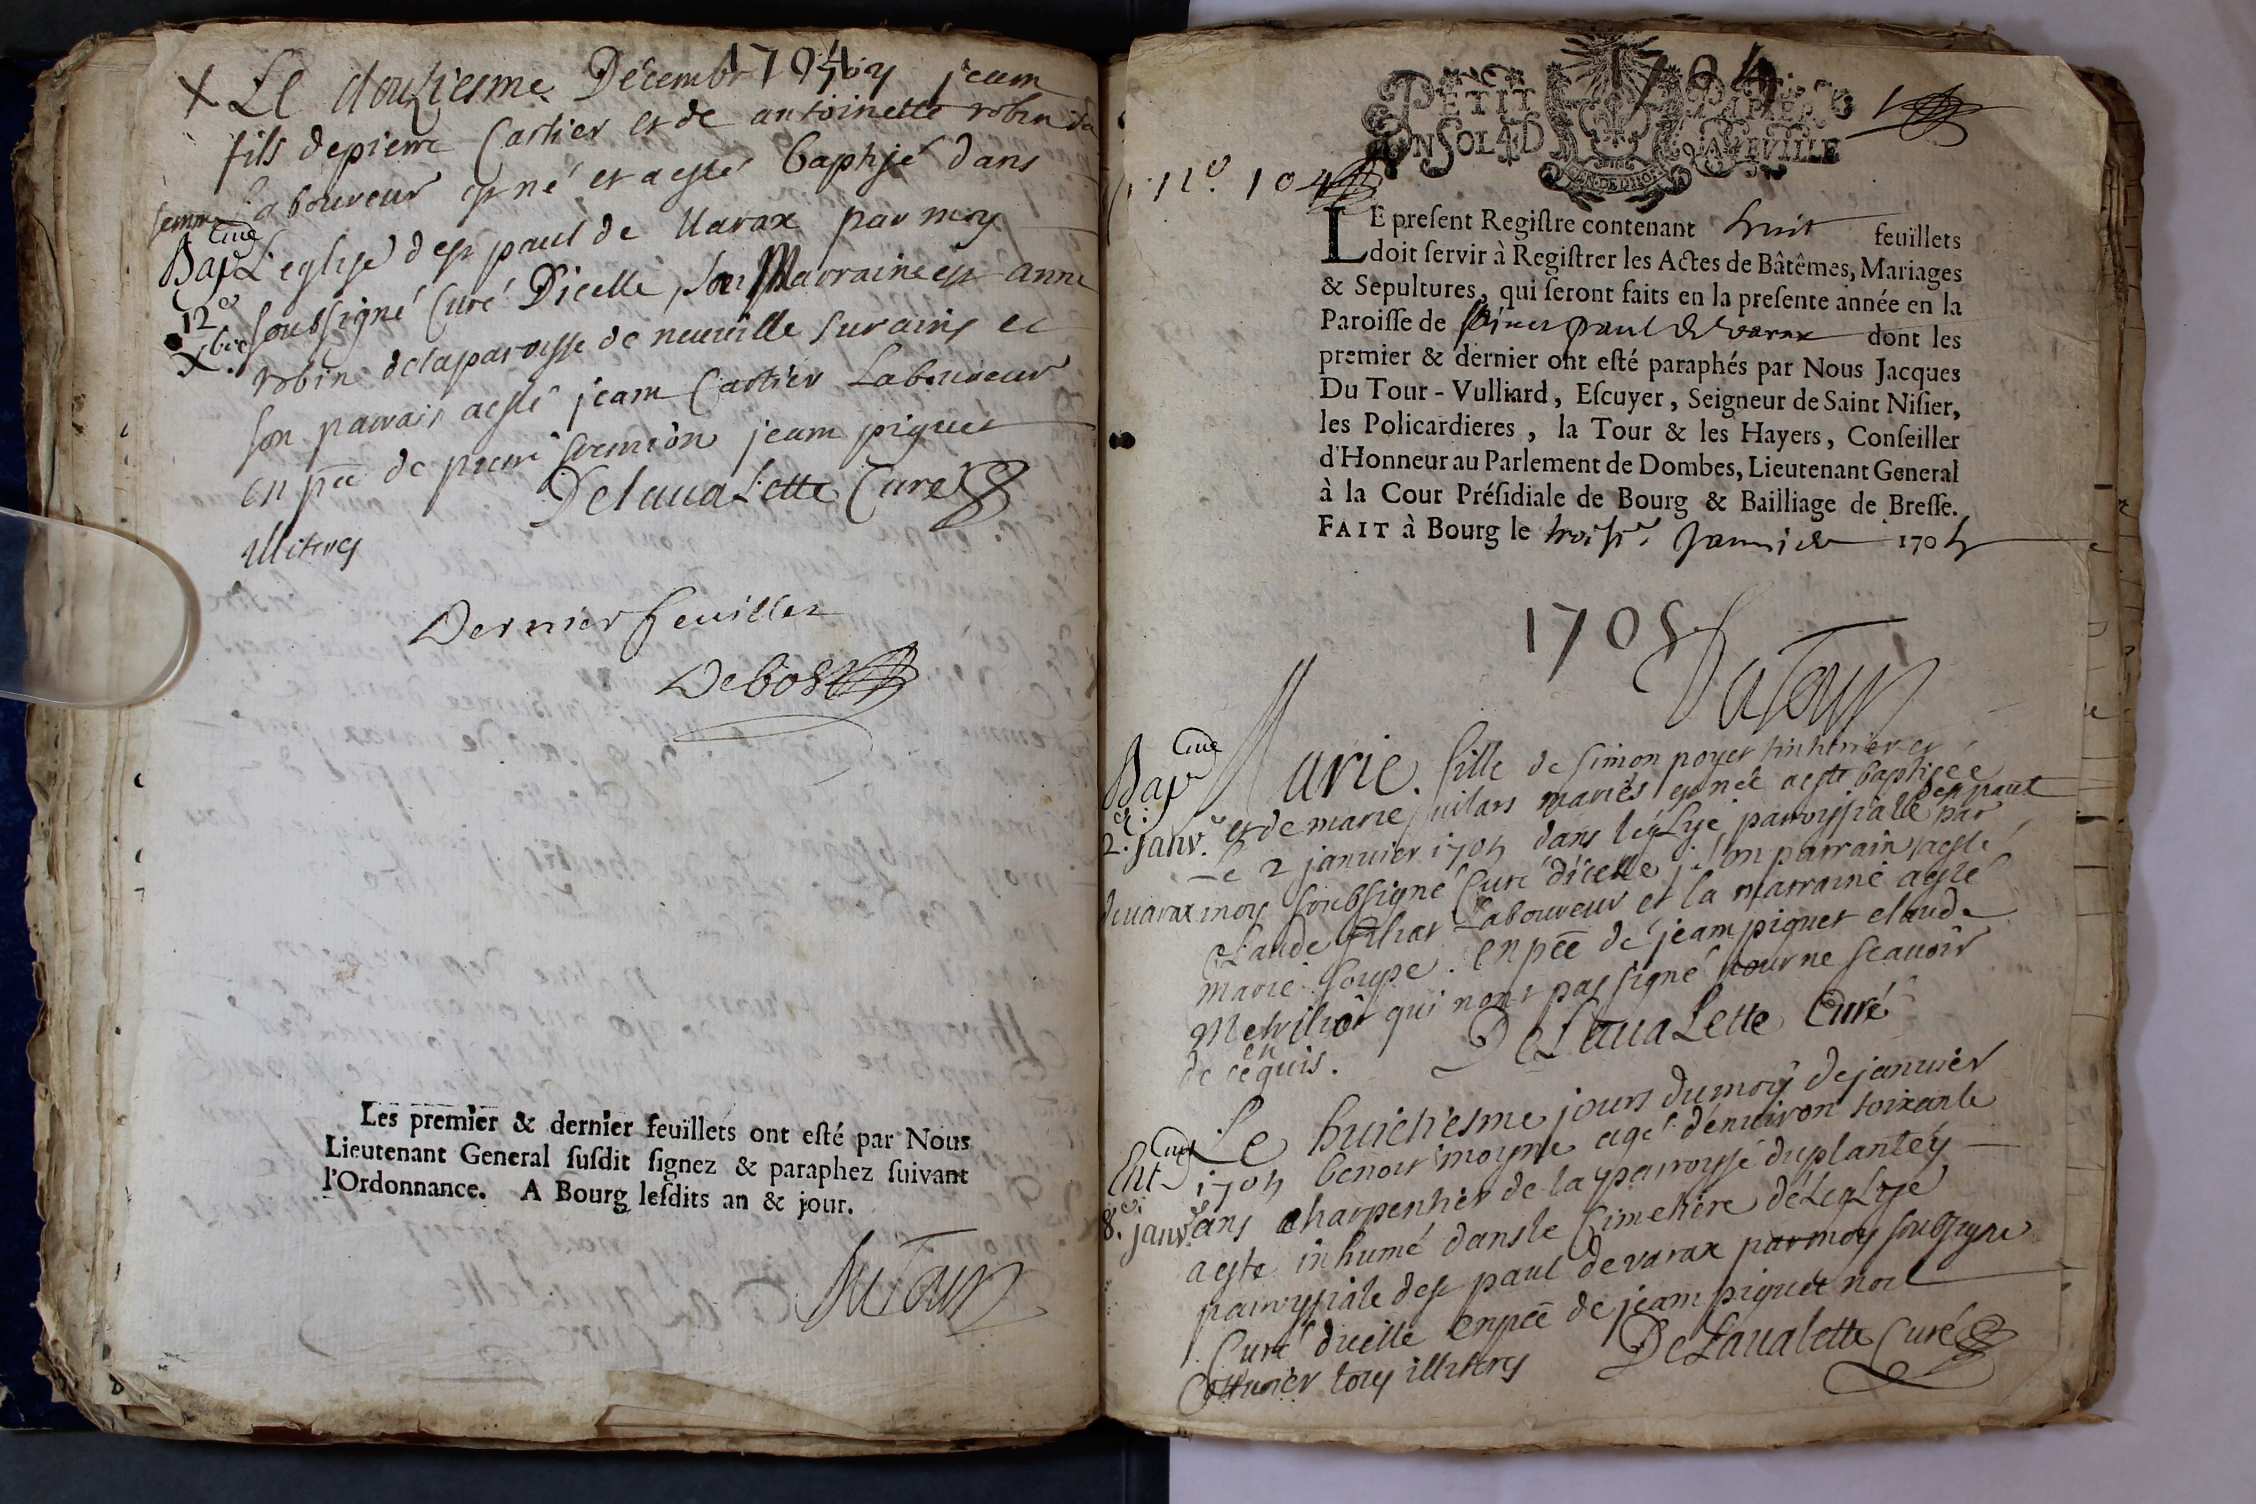 1704
Le douziesme Décembre jean
fils de pierre Cartier et de antoinette robin sa
femme Laboureur est né et a esté baptisé dans
L'eglise de st paul de Varax par moy
soubsigné Curé Dicelle, son Marraine est anne
robin de la paroisse de neuville sur ains et
son parrain a esté jean Cartier Laboureur
en pce de pierre jean piquet
Delavalette Curé
illiteres
Bap
12e
Xbre
Dernier feuillet
Debost
Les premier & dernier feuillets ont esté par Nous
Lieutenant General susdit signez & paraphez suivant
l'Ordonnance. A Bourg lesdits an & jour.
DuTour
1704
PETIT PAPIER
UN SOL 4 D LA FEUILLE
LE present Registre contenant huit feuillets
doit servir à Registrer les Actes de Bâtêmes, Mariages
& Sepultures, qui seront faits en la presente année en la
Paroisse de saint paul de varax dont les
premier & dernier ont esté paraphés par Nous Jacques
Du Tour-Vulliard, Escuyer, Seigneur de Saint Nisier,
les Policardieres, la Tour & les Hayers, Conseiller
d'Honneur au Parlement de Dombes, Lieutenant General
à la Cour Présidiale de Bourg & Bailliage de Bresse.
FAIT à Bourg le troisie Janvier 1705
1705
DuTour
Bap
2. janv.
Marie fille de simon poyet
et de marie mariés est née a esté baptisée
le 2 janvier 1705 dans léglise parroissialle de st paul
de varax moy soubsigné Curé dicelle par son parrain a esté
Claude Laboureur et la marraine a esté
marie soupe. en pce de jean piquet claude
qui nont pas signé pour ne scavoir
de ce enquis. DeLavaLette Curé
Ent
8. janv.
Le huictiesme jours du moys de janvier
1705 benoit moyne agé denviron soixante
ans charpentier de la parroysse du plantey
a esté inhumé dans le Cimetiere de L'eglise
parroyssiale de st paul de varax par moy soubsigné
Curé dicelle en pce de jean piquet noel
Cottunier tous illiteres DeLavalette Curé